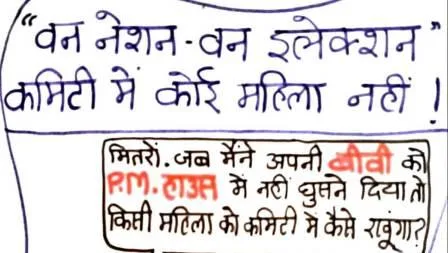 “वन नेशन-वन इलेक्शन”
कमिटी में कोई महिला नहीं !
मितरों. जब मैंने अपनी बीवी को
P.M. हाउस में नहीं घुसने दिया तो
किसी महिला को कमिटी में कैसे रखूंगा?